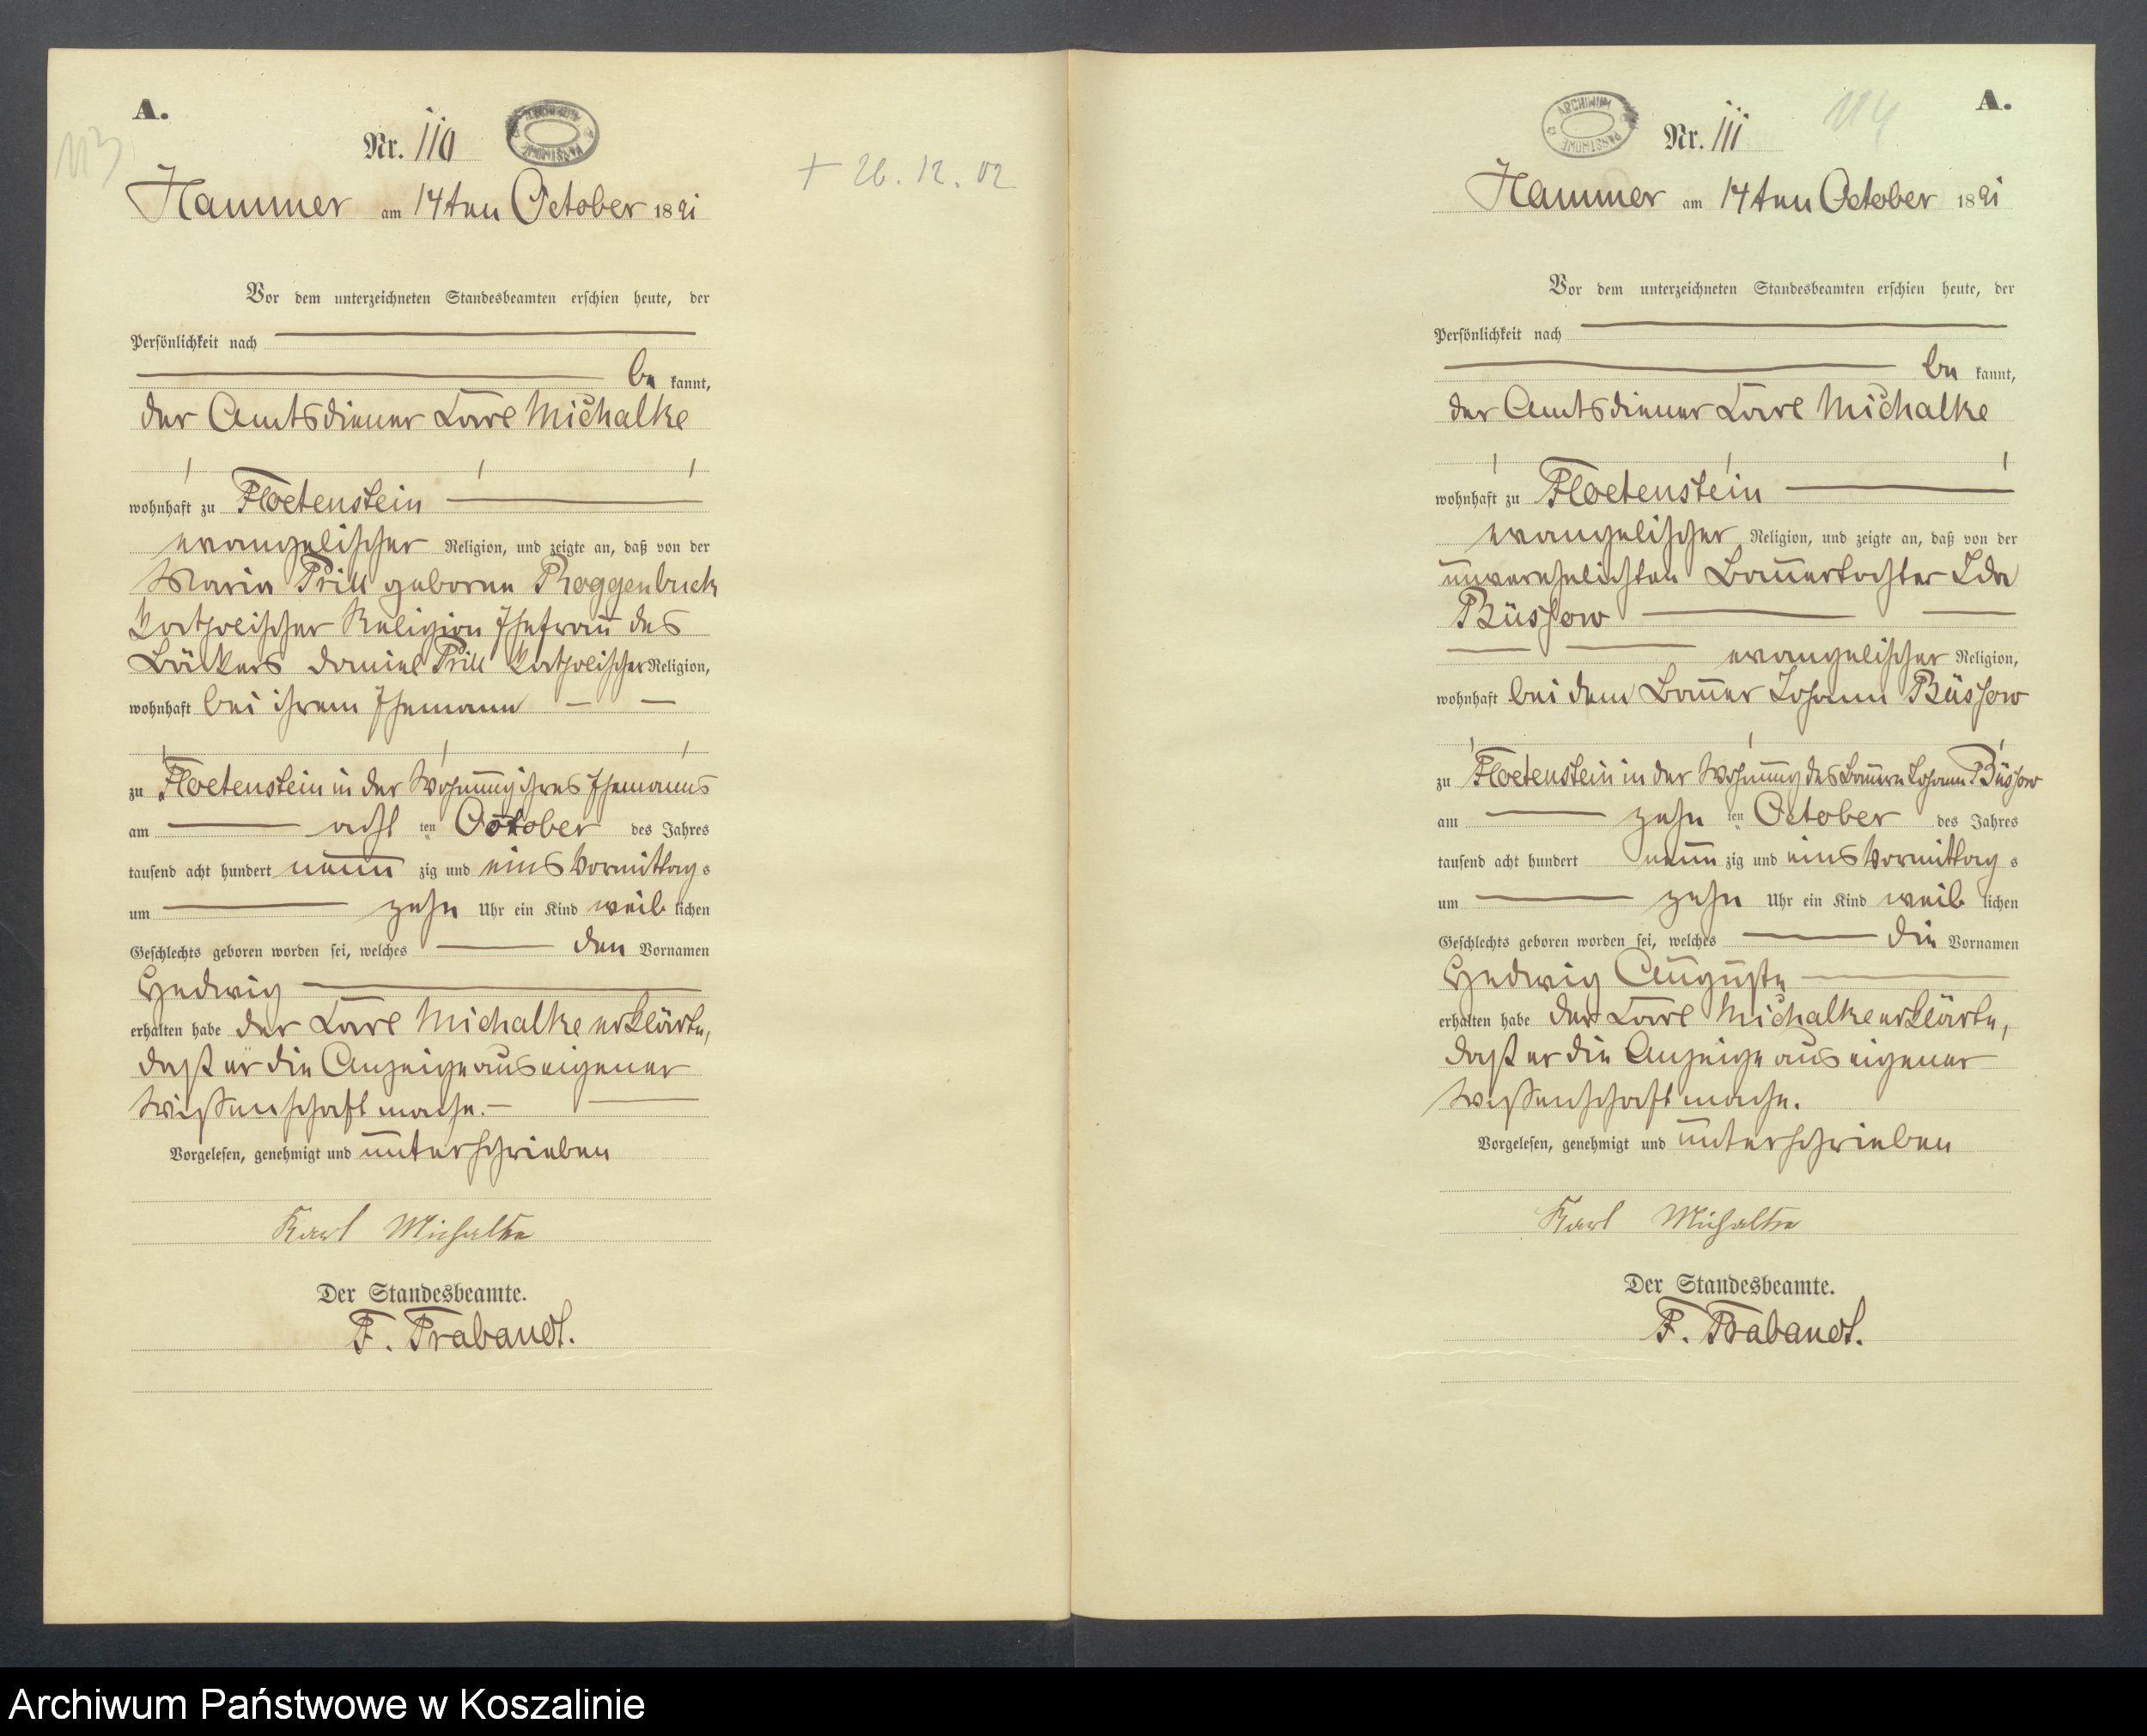 A.
113
Nr. 110
ARCHIWUM PAŃSTWOWE
Hammer am 14ten October 1891
+ 26. 12. 02
Vor dem unterzeichneten Standesbeamten erschien heute, der
Persönlichkeit nach
be kannt,
der Amtsdiener Carl Michalke
wohnhaft zu Floetenstein
evangelischer Religion, und zeigte an, daß von der
Maria Prill geborne Roggenbuck
katholischer Religion Ehefrau des
Bäckers Daniel Prill katholischer Religion,
wohnhaft bei ihrem Ehemann
zu Floetenstein in der Wohnung ihres Ehemanns
am acht ten October des Jahres
tausend acht hundert neun zig und eins Vormittag s
um zehn Uhr ein Kind weib lichen
Geschlechts geboren worden sei, welches den Vornamen
Hedwig
erhalten habe der Carl Michalke erklärte,
daß er die Anzeige aus eigener
Wissenschaft mache.
Vorgelesen, genehmigt und unterschrieben
Karl Michalke
Der Standesbeamte.
F. Trabandt.
A.
114
Nr. 111
ARCHIWUM PAŃSTWOWE
Hammer am 14ten October 1891
Vor dem unterzeichneten Standesbeamten erschien heute, der
Persönlichkeit nach
be kannt,
der Amtsdiener Carl Michalke
wohnhaft zu Floetenstein
evangelischer Religion, und zeigte an, daß von der
unverehelichten Bauertochter Ida
Büssow
evangelischer Religion,
wohnhaft bei dem Bauer Johann Büssow
zu Floetenstein in der Wohnung des Bauern Johann Büssow
am zehn ten October des Jahres
tausend acht hundert neun zig und eins Vormittag s
um zehn Uhr ein Kind weib lichen
Geschlechts geboren worden sei, welches die Vornamen
Hedwig Auguste
erhalten habe der Carl Michalke erklärte,
daß er die Anzeige aus eigener
Wissenschaft mache.
Vorgelesen, genehmigt und unterschrieben
Karl Michalke
Der Standesbeamte.
F. Trabandt.
Archiwum Państwowe w Koszalinie